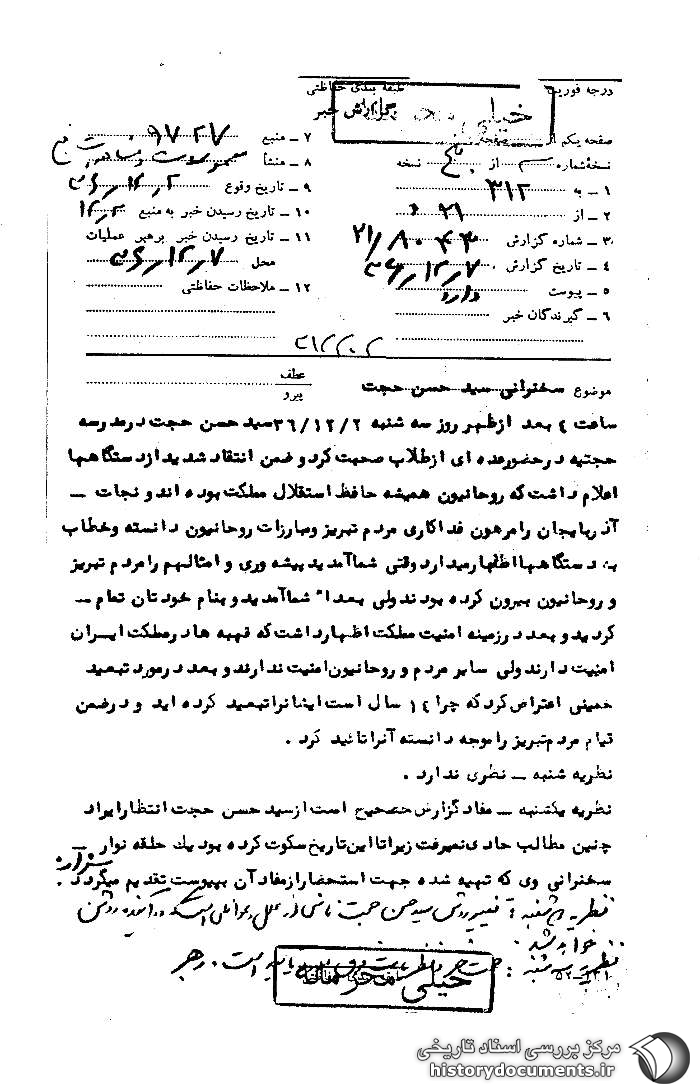 درجه فوریت
طبقه بندی حفاظتی
خیلی
گزارش خبر
صفحه یکم از صفحه
نسخه شماره از نسخه
۱ – به ۳۱۲
۲ – از ۲۱
۳ – شماره گزارش
۴ – تاریخ گزارش ۳۶٫۱۲٫۷
۵ – پیوست دارد
۶ – گیرندگان خبر
۷ – منبع ۹۷۲۷
۸ – منشأ
۹ – تاریخ وقوع ۳۶٫۱۲٫۲
۱۰ – تاریخ رسیدن خبر به منبع ۱۲٫۲
۱۱ – تاریخ رسیدن خبر برهبر عملیات
محل ۳۶٫۱۲٫۷
۱۲ – ملاحظات حفاظتی
عطف
موضوع سخنرانی سید حسن حجت
پیرو
ساعت ٤ بعد ازظهر روز سه شنبه ۳٦/۱۲/۲ سید حسن حجت درمدرسه
حجتیه درحضورعده ای ازطلاب صحبت کرد و ضمن انتقاد شدید ازدستگاهها
اعلام داشت که روحانیون همیشه حافظ استقلال مملکت بوده اند و نجات –
آذربایجان را مرهون فداکاری مردم تبریز ومبارزات روحانیون دانسته وخطاب
به دستگاهها اظهار میدارد وقتی شما آمدید پیشه وری و امثالهم را مردم تبریز
و روحانیون بیرون کرده بودند ولی بعدا" شما آمدید و بنام خودتان تمام –
کردید و بعد درزمینه امنیت مملکت اظهارداشت که قهبه ها درمملکت ایران
امنیت دارند ولی سایر مردم و روحانیون امنیت ندارند و بعد درمورد تبعید
خمینی اعتراض کرد که چرا ۱٤ سال است ایشانرا تبعید کرده اید و درضمن
قیام مردم تبریز را موجه دانسته آنرا تائید کرد .
نظریه شنبه – نظری ندارد .
نظریه یکشنبه – مفاد گزارش صحیح است ازسید حسن حجت انتظار ایراد
چنین مطالب حادی نمیرفت زیرا تا این تاریخ سکوت کرده بود یك حلقه نوار –
سخنرانی وی که تهیه شده جهت استحضار ازمفاد آن بپیوست تقدیم میگردد .
نظریه شنبه : تغییر روش سید حسن حجت ناشی از علل و عواملی است که در آینده روشن
خواهد شد .
نظریه سه شنبه : است . رهبر
خیلی محرمانه
مرکز بررسی اسناد تاریخی
historydocuments.ir